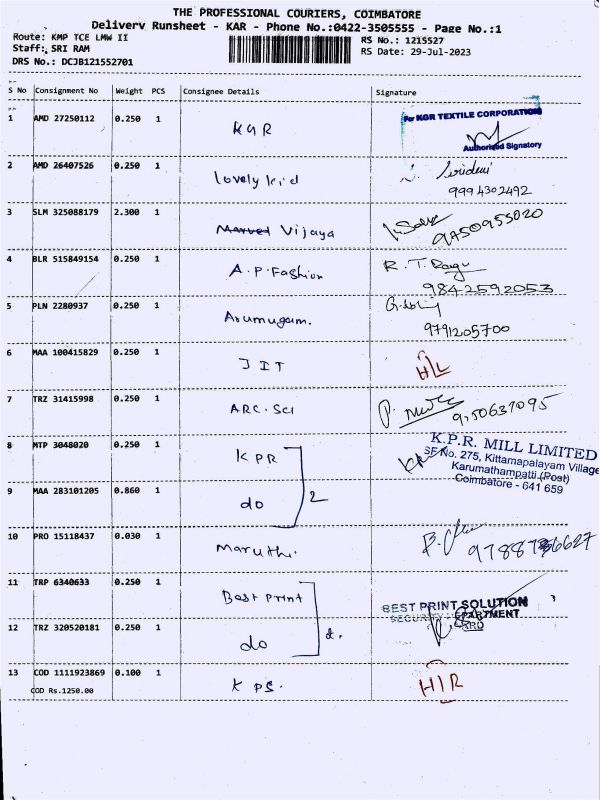 THE PROFESSIONAL COURIERS, COIMBATORE
Delivery Runsheet - KAR - Phone No.:0422-3505555 - Page No.:1
Route: KMP TCE LMW II
RS No.: 1215527
Staff: SRI RAM
RS Date: 29-Jul-2023
DRS No.: DCJB121552701
S No Consignment No Weight PCS Consignee Details Signature
1 AMD 27250112 0.250 1 KGR
For KGR TEXTILE CORPORATION
Authorised Signatory
2 AMD 26407526 0.250 1 Lovely kid
9994302492
3 SLM 325088179 2.300 1 Vijaya
9450955020
4 BLR 515849154 0.250 1 A.P.Fashion R.T.Ragu
9842592053
5 PLN 2280937 0.250 1 Arumugam.
9791205700
6 MAA 100415829 0.250 1 JIT
7 TRZ 31415998 0.250 1 ARC.SCI
8 MTP 3048020 0.250 1 KPR
K.P.R. MILL LIMITED
SF No. 275, Kittamapalayam Village
Karumathampatti (Post)
Coimbatore - 641 659
9 MAA 283101205 0.860 1 do 2
10 PRO 15118437 0.030 1 Maruthi.
11 TRP 6340633 0.250 1 Best Print
BEST PRINT SOLUTION
SECURITY DEPARTMENT
12 TRZ 320520181 0.250 1 do 2.
13 COD 1111923869 0.100 1 KPS.
COD Rs.1250.00